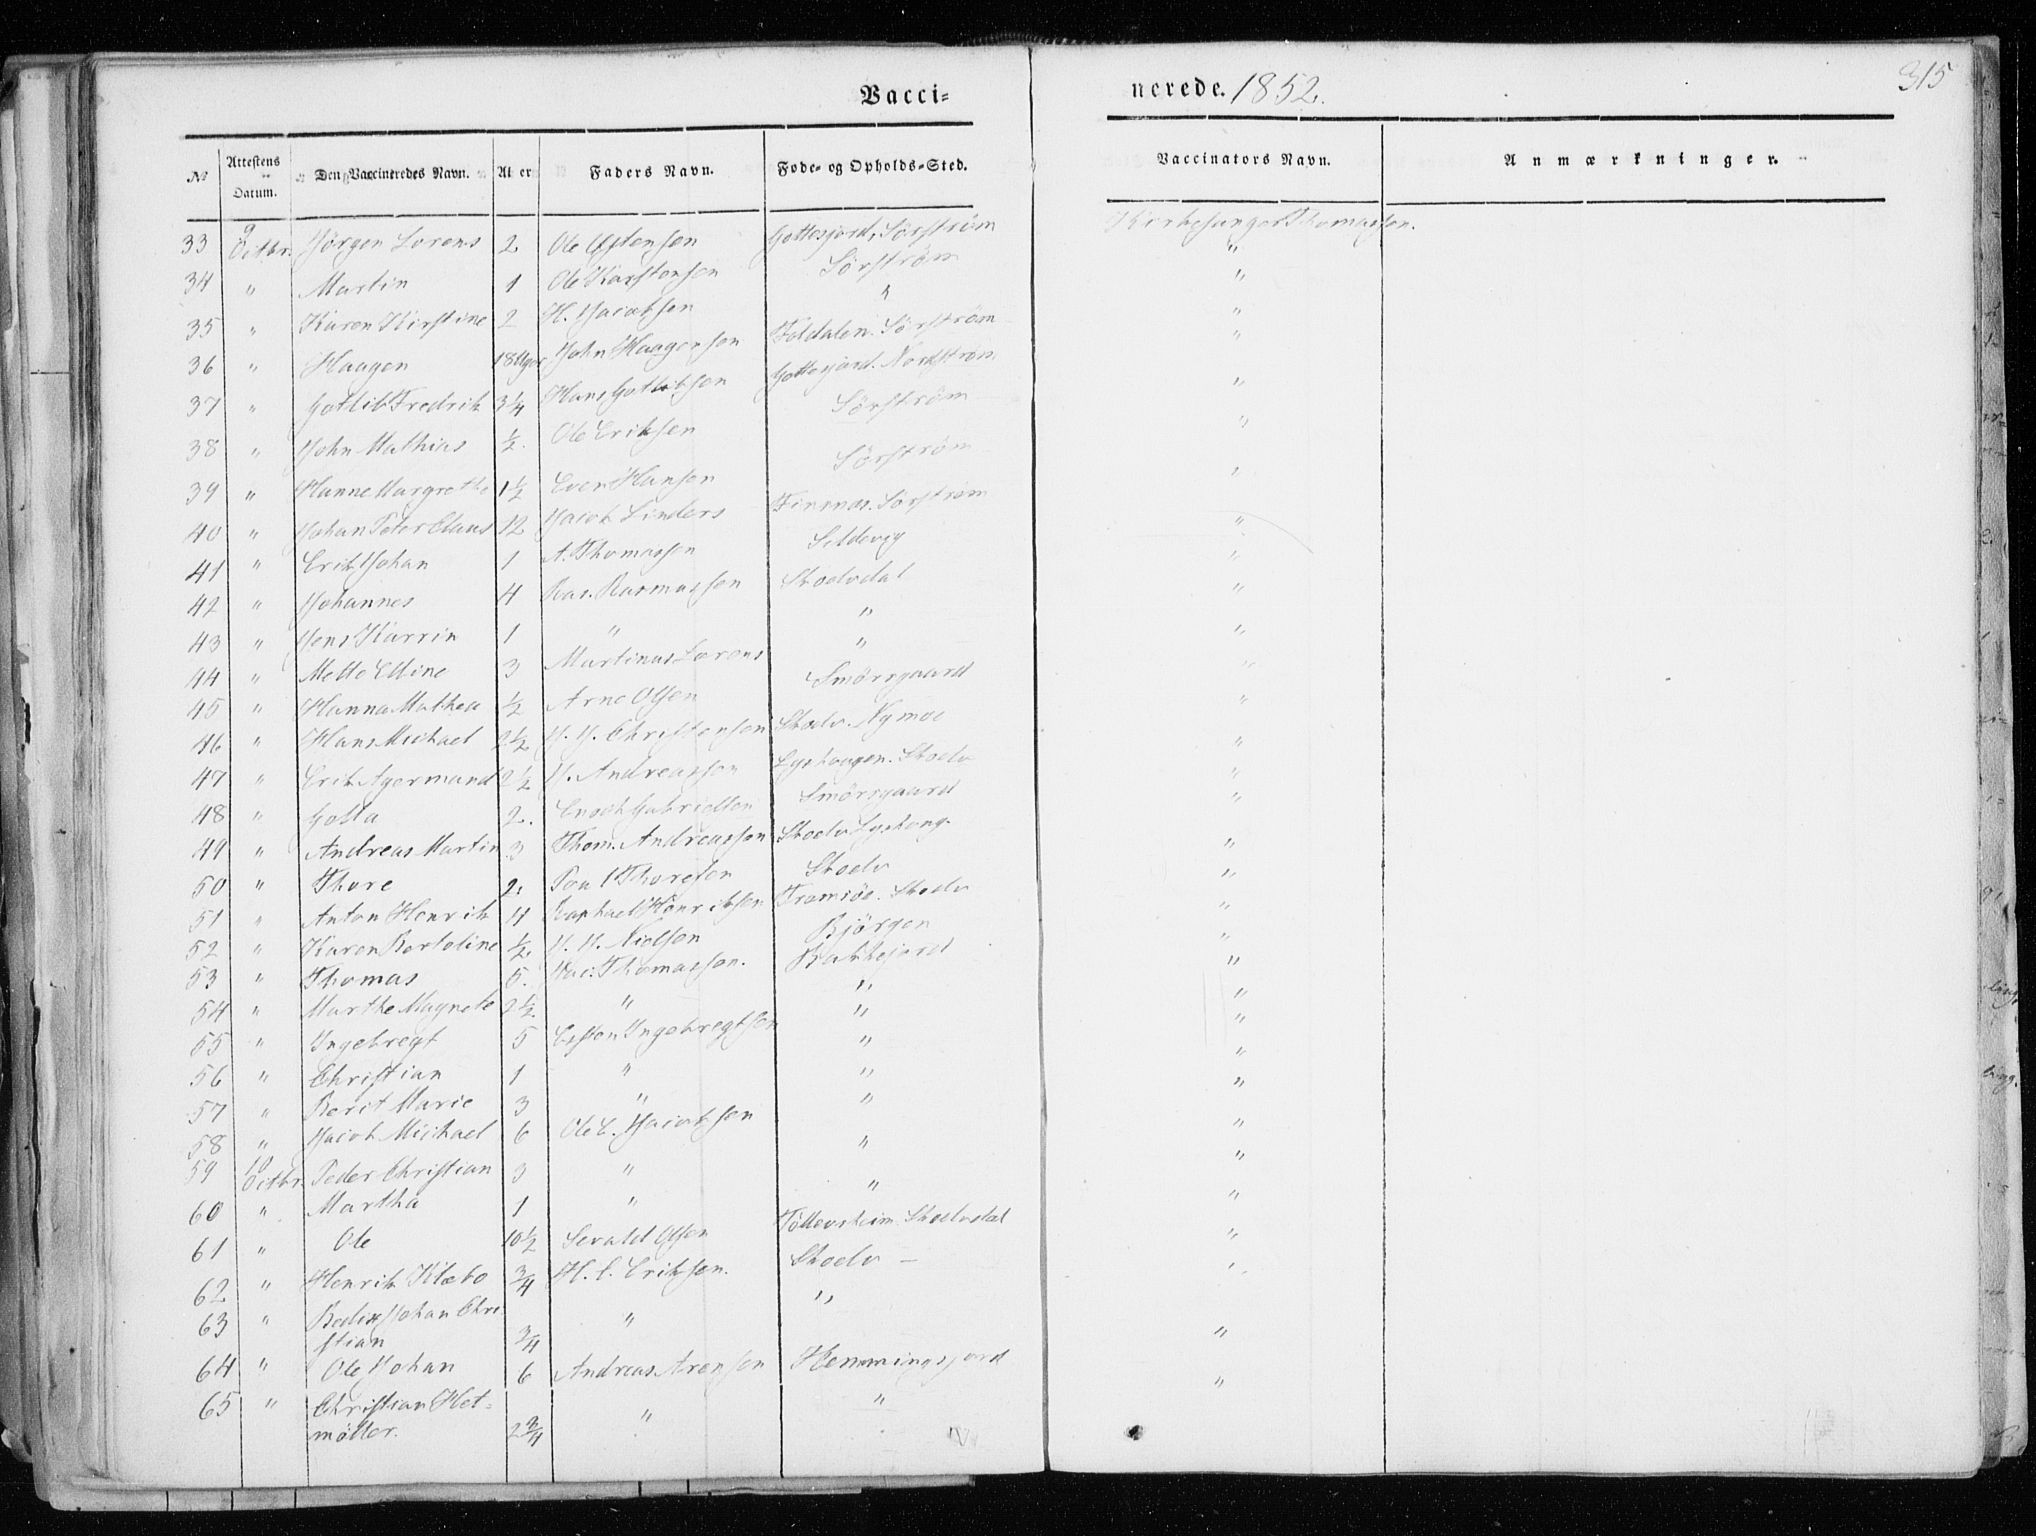 Vacci-
nerede. 1852.
315
No | Attestens Datum. | Den Vaccineredes Navn. | Alder | Faders Navn. | Føde- og Opholds-Sted. | Vaccinators Navn. | Anmærkninger.
33 | 9 Octbr. | Jørgen Lorens | 2 | Ole Østensen | Gottesjord, Sørstrøm | Kirkesanger Thomassen.
34 | " | Martin | 1 | Ole Karstensen | Sørstrøm | "
35 | " | Karen Kirstine | 2 | H. Jacobsen | " | "
36 | " | Haagen | 18 Uger | John Haagensen | Foldalen. Sørstrøm | "
37 | " | Gotlib Fredrik | 3 1/4 | Hans Gotlibsen | Gottesjord. Nordstrøm | "
38 | " | John Mathias | 1/2. | Ole Eriksen | Sørstrøm | "
39 | " | Hanne Margrethe | 1 1/2 | Even Hansen | Sørstrøm | "
40 | " | Johan Peter Claus | 12 | Jacob Linders | Finnnæs. Sørstrøm | "
41 | " | Erik Johan | 1 | A. Thomassen | Seldevig | "
42 | " | Johannes | 4 | Ras. Rasmussen | Skoelvdal | "
43 | " | Jens Karrin | 1 | " | " | "
44 | " | Mette Elline | 3 | Martinus Lorens | " | "
45 | " | Hanna Mathea | 1/2 | Arne Olsen | Smørsgaard | "
46 | " | Hans Michael | 2 1/2 | J. J. Christensen | Skoelv. Nymoe | "
47 | " | Erik Agermund | 2 1/2 | J. Andreassen | Lyshaugen. Skoelv | "
48 | " | Golla | 2. | Enoch Gabrielsen | Smørsgaard | "
49 | " | Andreas Martin | 3 | Thom. Andreassen | Skoelv Lyshaug | "
50 | " | Thore | 2. | Poul Thoresen | Skoelv | "
51 | " | Anton Henrik | 4 | Raphael Henriksen | Tromsøe. Skoelv | "
52 | " | Karen Bertoline | 1/2. | J. H. Nielsen | Bjørgen | "
53 | " | Thomas | 5. | Jac. Thomassen. | Bakkejord | "
54 | " | Marthe Magnete | 2 1/2. | " | " | "
55 | " | Ingebregt | 5 | Esten Ingebregtsen | " | "
56 | " | Christian | 1 | " | " | "
57 | " | Berit Marie | 3 | " | " | "
58 | " | Jacob Michael | 6 | Ole E. Jacobsen | " | "
59 | 10 Octbr. | Peder Christian | 3 | " | " | "
60 | " | Martha | 1 | " | " | "
61 | " | Ole | 10 1/2 | Sevald Olsen | Tøllevsheim. Skoelvdal | "
62 | " | Henrik Klæbo | 3/4 | H. C. Eriksen. | Skoelv – | "
63 | " | Beder Johan Chri-
stian | 3/4 | " | " | "
64 | " | Ole Johan | 6 | Andreas Arensen | Hemmingsjord | "
65 | " | Christian Het-
møller. | 2 3/4 | " | "